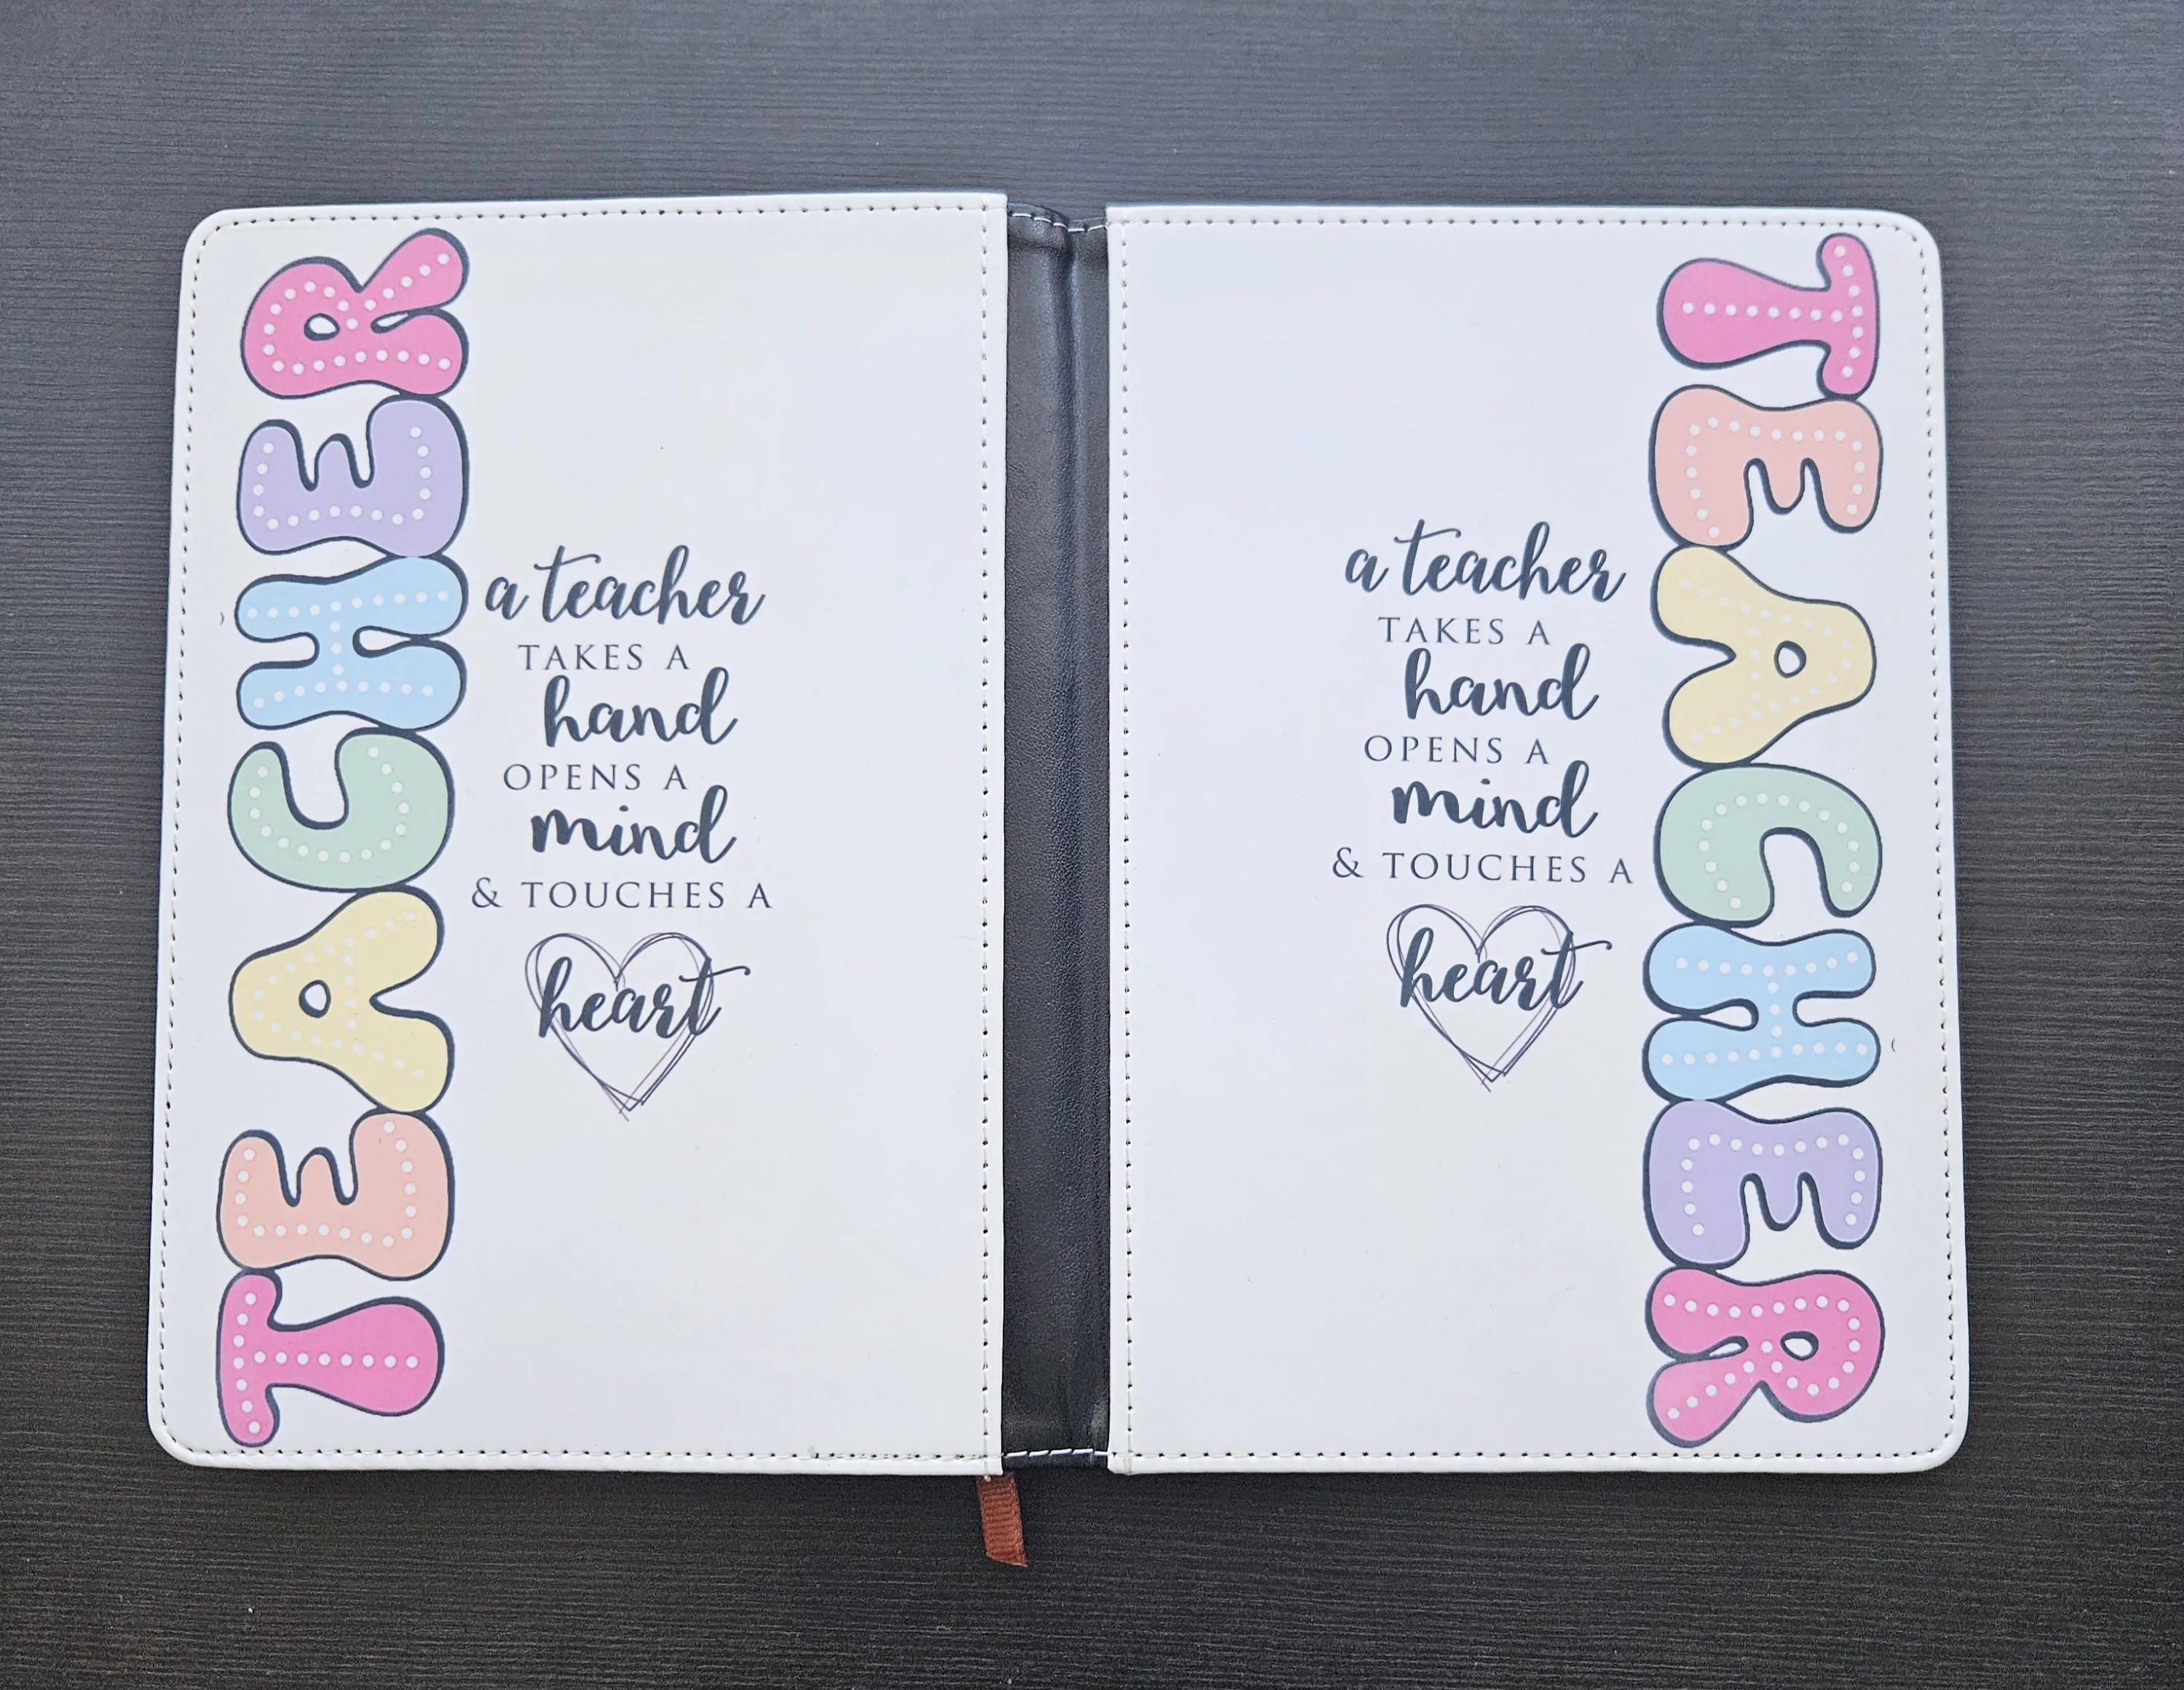 TEACHER
a teacher
TAKES A
hand
OPENS A
mind
& TOUCHES A
heart
a teacher
TAKES A
hand
OPENS A
mind
& TOUCHES A
heart
TEACHER